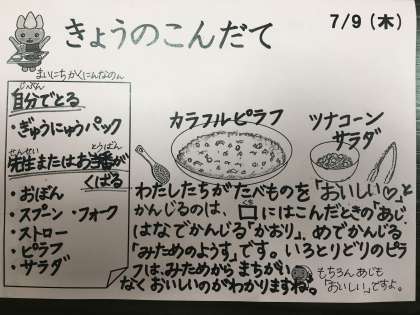 7/9（木）
きょうのこんだて
まいにちかくにんなのん
じぶん
自分でとる
・ぎゅうにゅうパック
せんせい とうばん
先生またはお当番が
くばる
・おぼん
・スプーン ・フォーク
・ストロー
・ピラフ
・サラダ
カラフルピラフ
ツナコーン
サラダ
わたしたちがたべものを「おいしい♡」と
かんじるのは、口にはこんだときの「あじ」
はなでかんじる「かおり」、めでかんじる
「みためのようす」です。いろとりどりのピラ
フは、みためから まちがい
なく おいしいのがわかりますね。
もちろん あじも
「おいしい」ですよ。